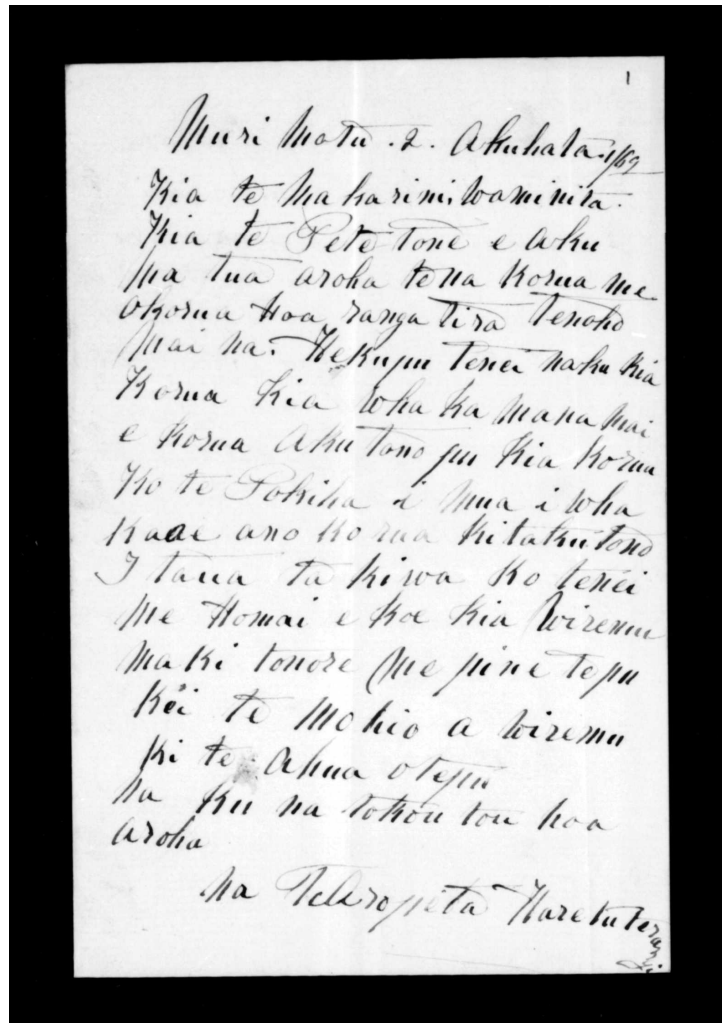 1
Muri Motu . 2 . Akuhata 1/69
Kia te Makarini, waminita.
Kia te Pete tone e aku
ma tua aroha tena Korua me
oKorua Hoa ranga tira tenoho
mai na. HeKupu tenei naku Kia
Korua Kia wha ka mana mai
e Korua aku tono pu Kia Korua
Ko te Pokiha i mua i wha
Kaae ano Ko rua Kitaku tono
I taua ta kiwa Ko tenei
me Homai e Koe Kia Wiremu
maki tonore me pine tepu
Kei te mohio a Wiremu
Ki te Ahua otepu
na Ku na tokou tou hoa
aroha
na TeAropeta Haretuterangi